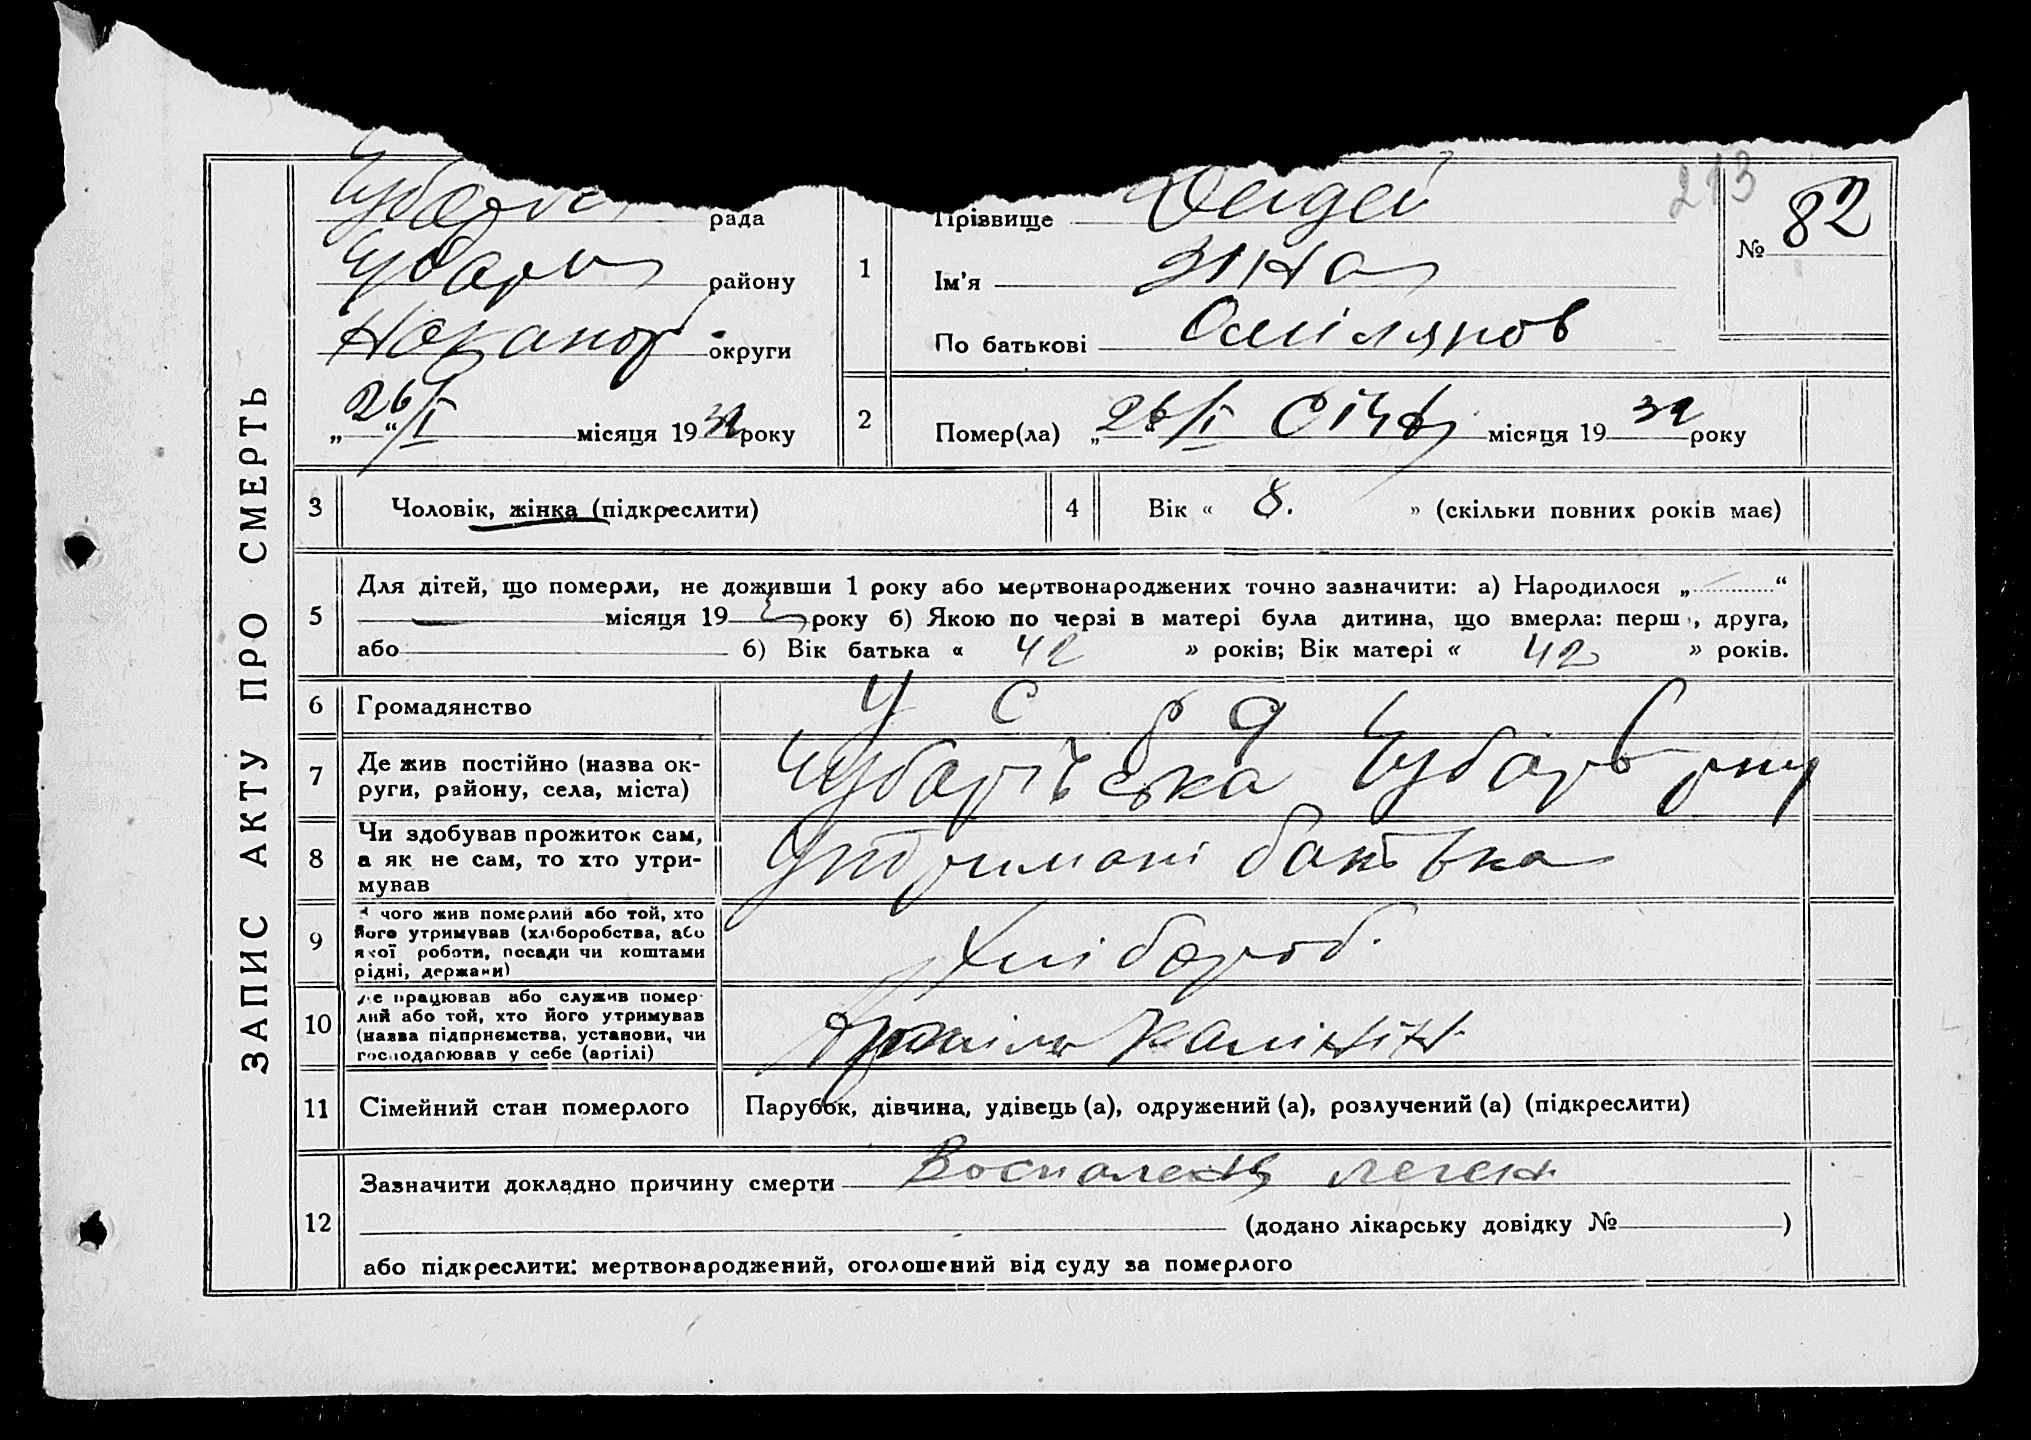 213
рада
Прізвище
№ 82
району
1
Ім'я Зіна
округи
По батькові
„26“/I місяця 1932 року
2
Помер(ла) „26“/I Січ місяця 1932 року
ЗАПИС АКТУ ПРО СМЕРТЬ
3
Чоловік, жінка (підкреслити)
4
Вік « 8. » (скільки повних років має)
5
Для дітей, що померли, не доживши 1 року або мертвонароджених точно зазначити: а) Народилося „ “
місяця 19 року б) Якою по черзі в матері була дитина, що вмерла: перша, друга,
або б) Вік батька « 42 » років; Вік матері « 42 » років.
6
Громадянство У С Р Р
7
Де жив постійно (назва ок-
руги, району, села, міста)
Чубарівська Чубарів рну
8
Чи здобував прожиток сам,
а як не сам, то хто утри-
мував
Утримані батька
9
З чого жив померлий або той, хто
його утримував (хліборобства, або
якої роботи, посади чи коштами
рідні, держави)
Хлібороб.
10
Де працював або служив помер-
лий або той, хто його утримував
(назва підприємства, установи, чи
господарював у себе (артілі)
Калінін
11
Сімейний стан померлого
Парубок, дівчина, удівець (а), одружений (а), розлучений (а) (підкреслити)
12
Зазначити докладно причину смерти Воспаление легк.
(додано лікарську довідку № )
або підкреслити: мертвонароджений, оголошений від суду за померлого